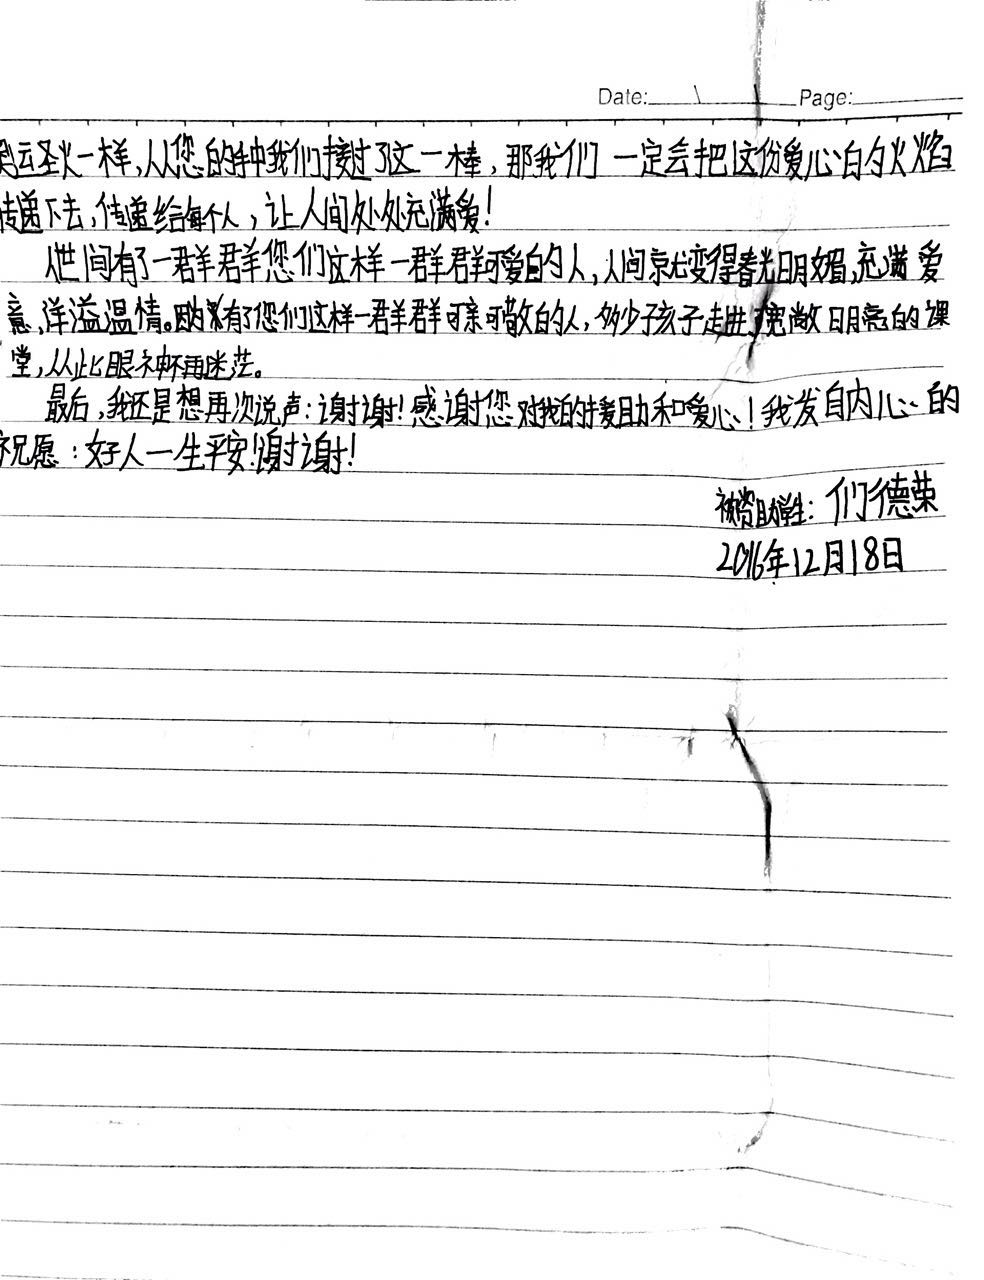 Date: \ Page:
奥运圣火一样,从您的手中我们接过了这一棒,那我们一定会把这份爱心的火焰
传递下去,传递给每个人,让人间处处充满爱!
世间有了一群群您们这样一群群可爱的人,人间就变得春光明媚,充满爱
意,洋溢温情。因为有了您们这样一群群可亲可敬的人,多少孩子走进了宽敞明亮的课
堂,从此眼神不再迷茫。
最后,我还是想再次说声:谢谢!感谢您对我的援助和爱心!我发自内心的
祝愿:好人一生平安!谢谢!
被资助学生: 们德荣
2016年12月18日